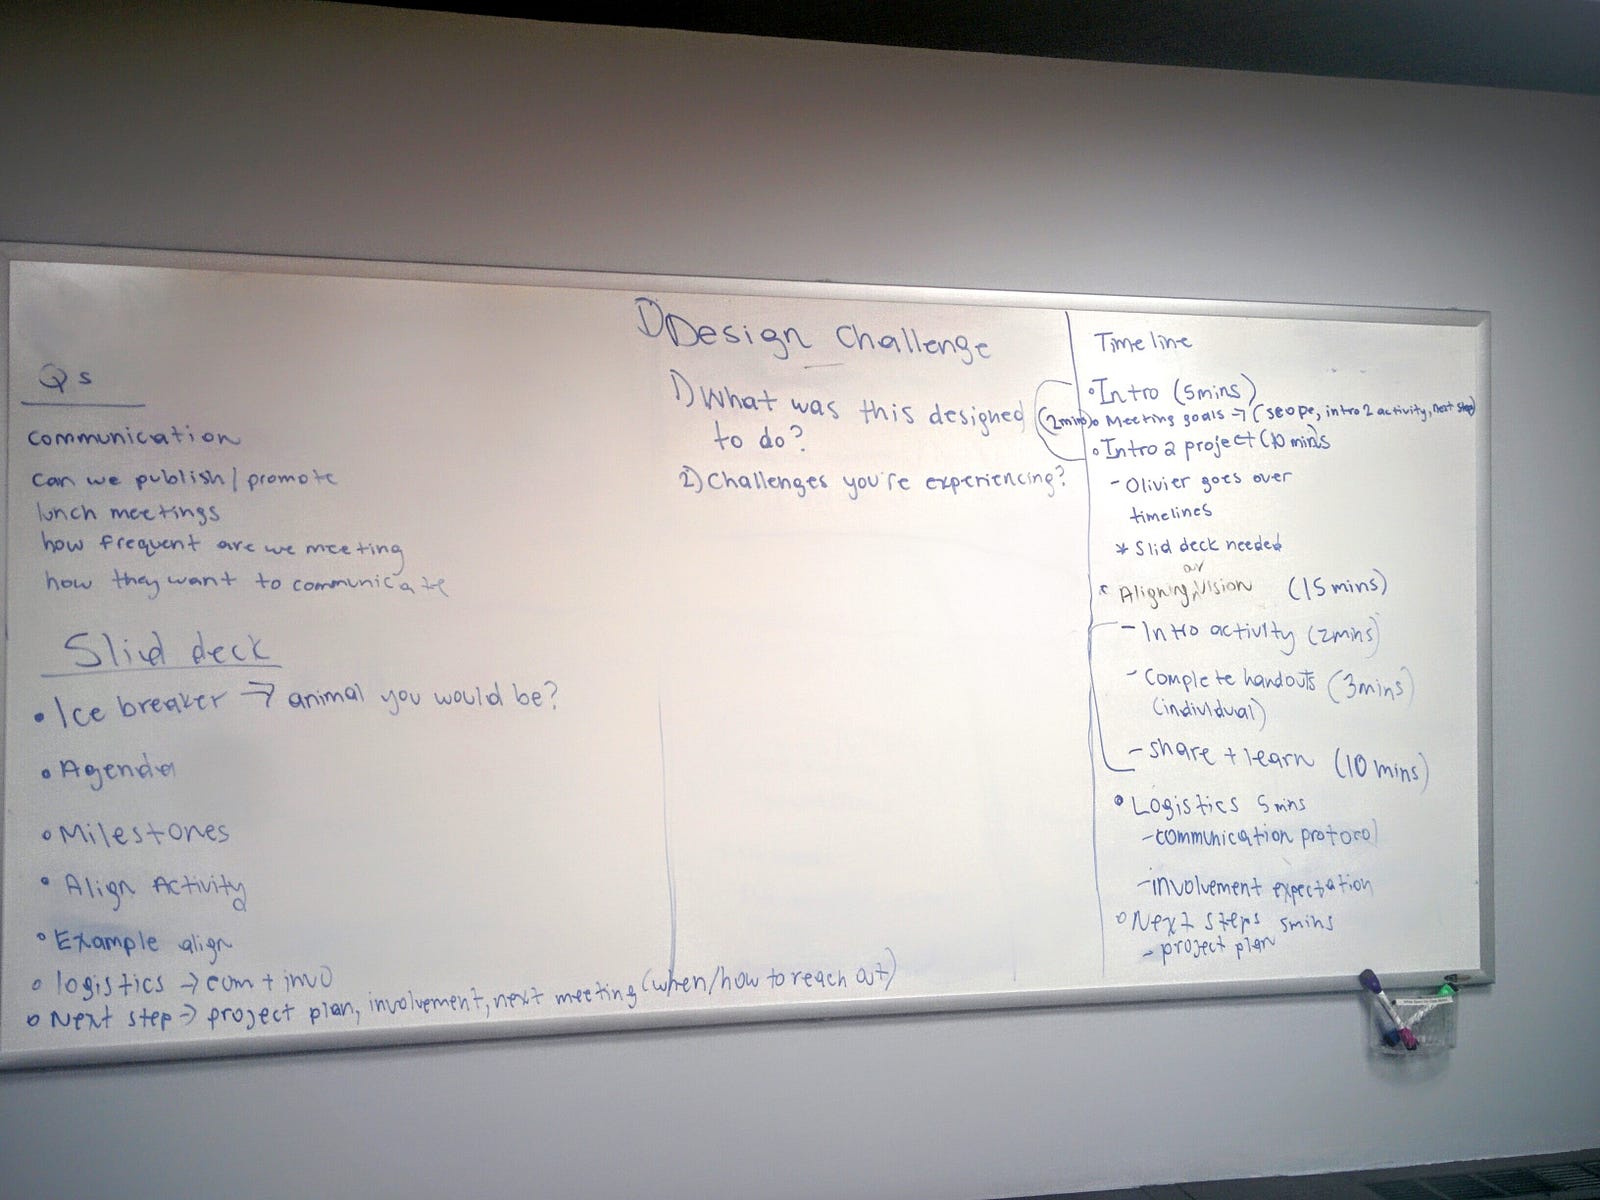 Qs
communication
can we publish/promote
lunch meetings
how frequent are we meeting
how they want to communicate
Slid deck
• Ice breaker → animal you would be?
• Agenda
• Milestones
• Align Activity
• Example align
• logistics → com + invo
• Next step → project plan, involvement, next meeting (when/how to reach out)
1) Design Challenge
1) What was this designed
to do?
2) Challenges you're experiencing?
Time line
• Intro (5mins)
(2mins) • Meeting goals → (scope, intro 2 activity, next step)
• Intro 2 project (10 mins)
- Olivier goes over
timelines
* Slid deck needed
• Aligning our vision (15 mins)
- Intro activity (2mins)
- Complete handouts (3mins)
(individual)
- share + learn (10 mins)
• Logistics 5 mins
- communication protocol
- involvement expectation
• Next steps 5mins
- project plan